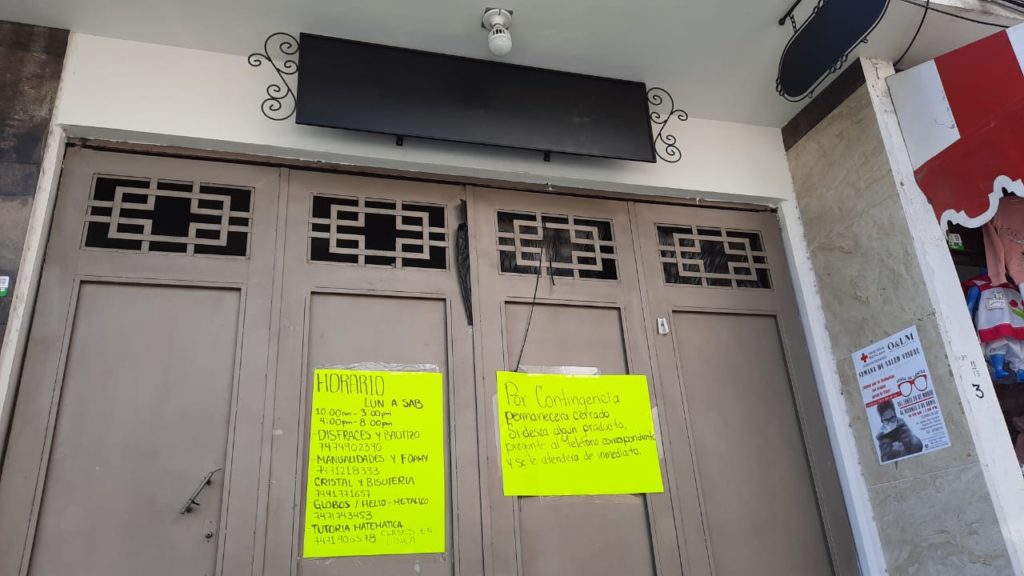 HORARIO
LUN A SAB
10:00am - 3:00pm
4:00pm - 8:00pm
DISFRACES Y BAUTIZO
7474902390
MANUALIDADES Y FOAMY
7471218333
CRISTAL Y BISUTERIA
7441771657
GLOBOS / HELIO - METALICO
7471743453
TUTORIA MATEMATICA
7471906578 CLASES EN LINEA
Por Contingencia
permanecera cerrado
Si desea algun producto,
pregunte al telefono correspondiente
y se le atendera de inmediato.
O&LM
SEMANA DE SALUD VISUAL
3